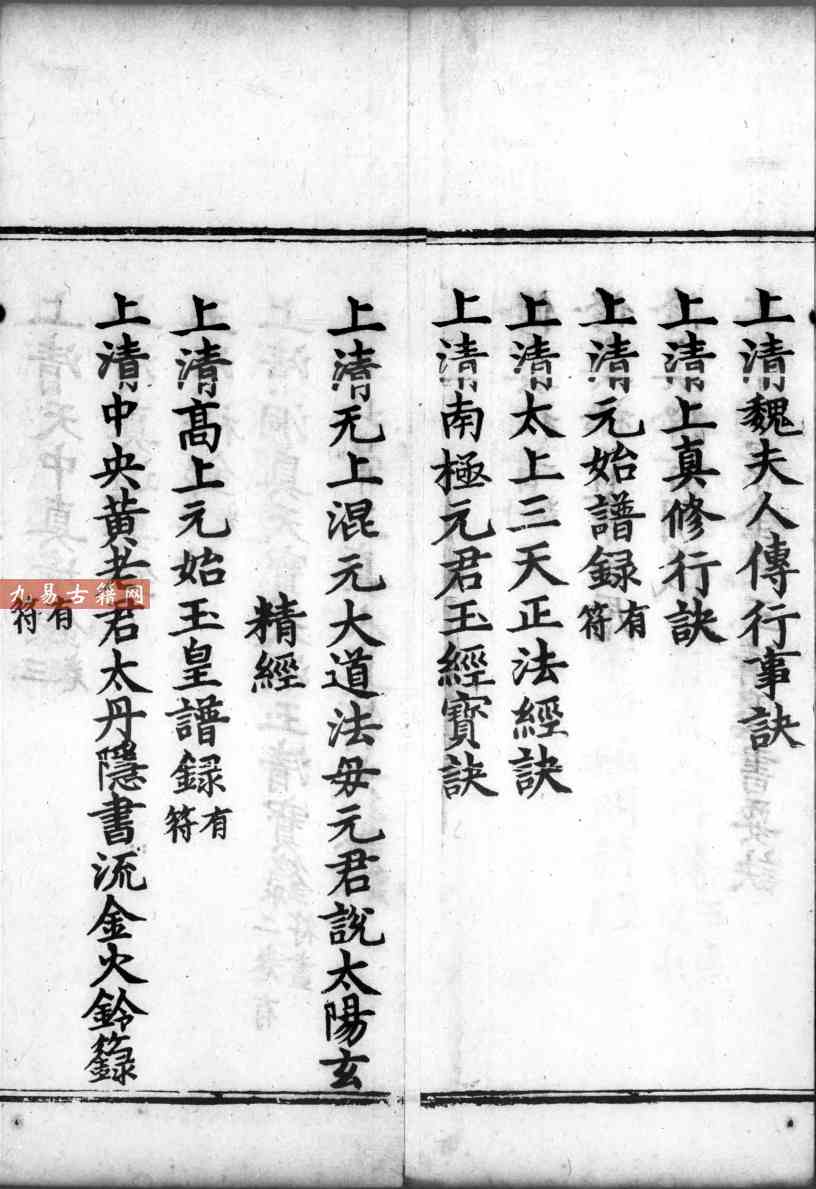 上清魏夫人傳行事訣
上清上真修行訣
上清元始譜録有符
上清太上三天正法經訣
上清南極元君玉經寳訣
上清无上混元大道法母元君說太陽玄
精經
上清髙上元始玉皇譜録有符
上清中央黄老君太丹隱書流金火鈴籙
有符
九易古籍网